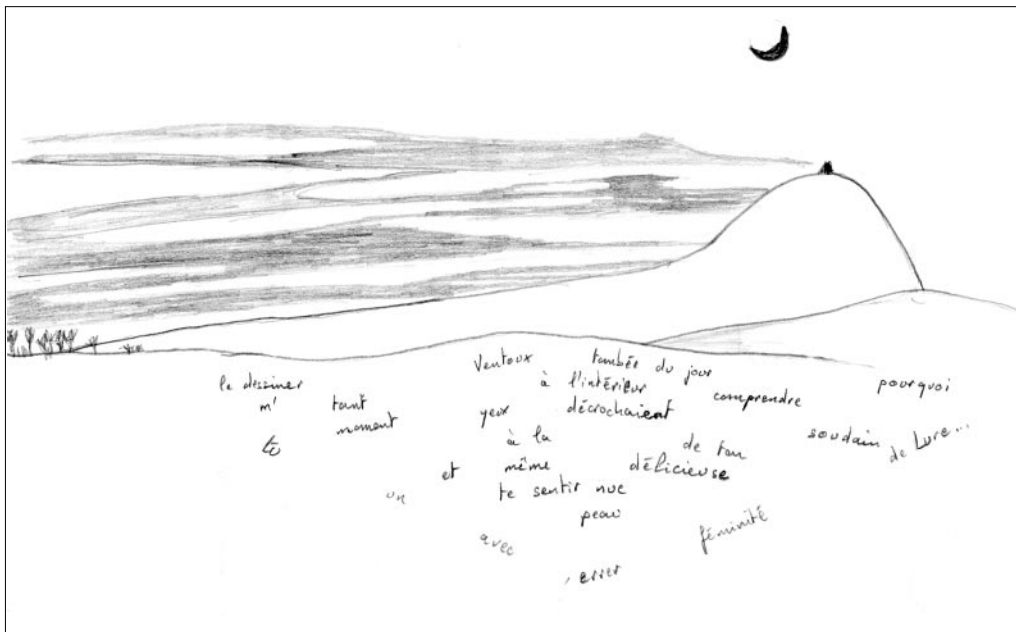 Ventoux tombée du jour
le dessiner à l'intérieur comprendre pourquoi
m' tant yeux décrochaient
moment à la de ton soudain de Lure...
et même délicieuse
un te sentir nue
peau
avec féminité
errer